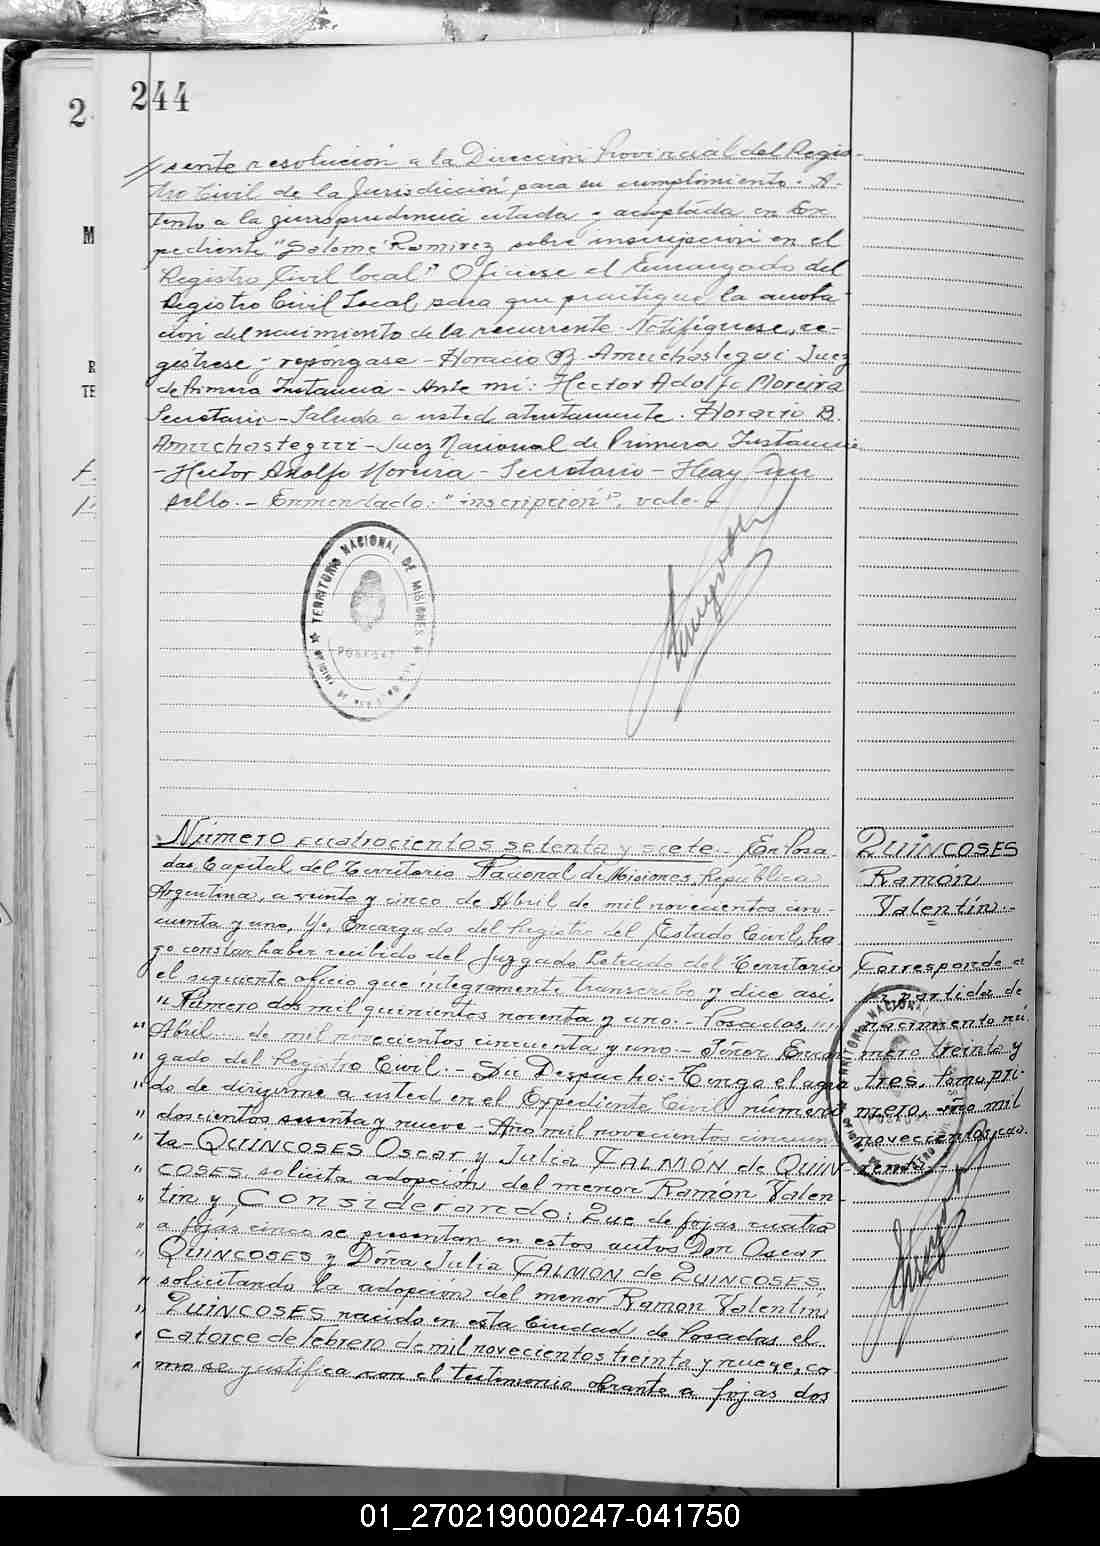 244
2
//sente resolución a la Dirección Provincial del Regis-
tro Civil de la Jurisdicción, para su cumplimiento. A-
tento a la jurisprudencia citada y adoptada en Ex-
pediente "Salomé Ramirez sobre inscripción en el
Registro Civil local" Ofíciese al Encargado del
Registro Civil Local, para que practique la anota-
ción del nacimiento de la recurrente. Notifíquese, re-
gístrese y repóngase - Horacio B. Amuchastegui Juez
de Primera Instancia - Ante mi: Hector Adolfo Moreira
Secretario - Saluda a usted atentamente. Horacio B.
Amuchastegui - Juez Nacional de Primera Instancia
- Hector Adolfo Moreira - Secretario - Hay un
sello. - Enmendado: "inscripción", vale.
TERRITORIO NACIONAL DE MISIONES
POSADAS
Número cuatrocientos setenta y siete. - En Posa-
das, Capital del Territorio Nacional de Misiones, República
Argentina, a veinte y cinco de Abril de mil novecientos cin-
cuenta y uno, Yo, Encargado del Registro del Estado Civil, ha-
go constar haber recibido del Juzgado Letrado del Territorio
el siguiente oficio que integramente transcribo y dice asi:
"Número dos mil quinientos noventa y uno. - Posadas,
"Abril de mil novecientos cincuenta y uno. - Señor Encar-
"gado del Registro Civil. - Su Despacho: - Tengo el agra-
"do de dirigirme a usted en el Expediente Civil número
"doscientos sesenta y nueve - Año mil novecientos cincuen-
"ta - QUINCOSES Oscar y Julia TALMÓN de QUIN-
"COSES, solicita adopción del menor Ramón Valen-
"tín y Considerando: Que de fojas cuatro
"a fojas cinco se presentan en estos autos Don Oscar
"QUINCOSES y Dóña Julia TALMON de QUINCOSES,
"solicitando la adopción del menor Ramon Valentín
"QUINCOSES nacido en esta Ciudad de Posadas el
"catorce de Febrero de mil novecientos treinta y nueve, co-
"mo se justifica con el testimonio obrante a fojas dos
QUINCOSES
Ramón
Valentín. -
Corresponde a
la partida de
nacimiento nú-
mero treinta y
tres, tomo pri-
mero, año mil
novecientos cua-
renta. -
01_270219000247-041750